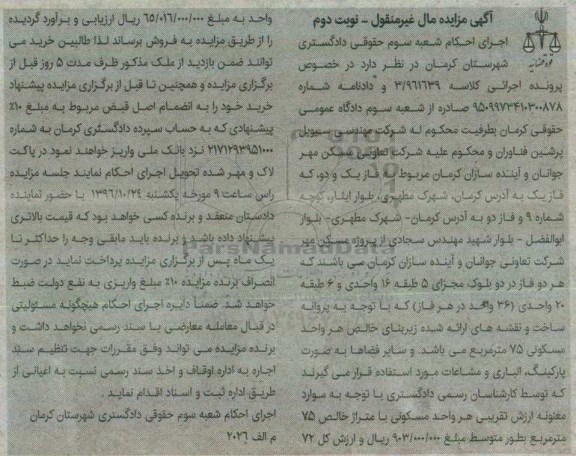 آگهی مزایده مال غیرمنقول - نوبت دوم
اجرای احکام شعبه سوم حقوقی دادگستری
شهرستان کرمان در نظر دارد در خصوص
پرونده اجرائی کلاسه ۳/۹۶۱۶۳۹ و دادنامه شماره
۹۵۰۹۹۷۳۴۱۰۳۰۰۸۷۸ صادره از شعبه سوم دادگاه عمومی
حقوقی کرمان بطرفیت محکوم له شرکت مهندسی سیویل
پرشین فناوران و محکوم علیه شرکت تعاونی مسکن مهر
جوانان و آینده سازان کرمان مربوط به فاز یک و دو، که
فاز یک به آدرس کرمان، شهرک مطهری، بلوار ایثار، کوچه
شماره ۹ و فاز دو به آدرس کرمان- شهرک مطهری- بلوار
ابوالفضل - بلوار شهید مهندس سجادی از پروژه مسکن مهر
شرکت تعاونی جوانان و آینده سازان کرمان می باشند که
هر دو فاز در دو بلوک مجزای ۵ طبقه ۱۶ واحدی و ۶ طبقه
۲۰ واحدی (۳۶ واحد در هر فاز) که با توجه به پروانه
ساخت و نقشه های ارائه شده زیربنای خالص هر واحد
مسکونی ۷۵ مترمربع می باشد. و سایر فضاها به صورت
پارکینگ، انباری و مشاعات مورد استفاده قرار می گیرند
که توسط کارشناسان رسمی دادگستری با توجه به موارد
معنونه ارزش تقریبی هر واحد مسکونی با متراژ خالص ۷۵
مترمربع بطور متوسط مبلغ ۹۰۳/۰۰۰/۰۰۰ ریال و ارزش کل ۷۲
واحد به مبلغ ۶۵/۰۱۶/۰۰۰/۰۰۰ ریال ارزیابی و برآورد گردیده
را از طریق مزایده به فروش برساند لذا طالبین خرید می
توانند ضمن بازدید از ملک مذکور ظرف مدت ۵ روز قبل از
برگزاری مزایده و همچنین تا قبل از برگزاری مزایده پیشنهاد
خرید خود را به انضمام اصل قبض مربوط به مبلغ ۱۰٪
پیشنهادی که به حساب سپرده دادگستری کرمان به شماره
۲۱۷۱۲۹۳۹۵۱۰۰۰ نزد بانک ملی واریز خواهند نمود در پاکت
لاک و مهر شده تحویل اجرای احکام نمایند جلسه مزایده
راس ساعت ۹ مورخه یکشنبه ۱۳۹۶/۱۰/۲۴ با حضور نماینده
دادستان منعقد و برنده کسی خواهد بود که قیمت بالاتری
پیشنهاد داده باشد و برنده باید مابقی وجه را حداکثر تا
یک ماه پس از برگزاری مزایده پرداخت نماید در صورت
انصراف برنده مزایده ۱۰٪ مبلغ واریزی به نفع دولت ضبط
خواهد شد. ضمناً دایره اجرای احکام هیچگونه مسئولیتی
در قبال معامله معارض با سند رسمی نخواهد داشت و
برنده مزایده می تواند وفق مقررات جهت تنظیم سند
اجاره به اداره اوقاف و اخذ سند رسمی نسبت به اعیانی از
طریق اداره ثبت و اسناد اقدام نماید.
اجرای احکام شعبه سوم حقوقی دادگستری شهرستان کرمان
م الف ۲۰۲۶
ParsNamadData